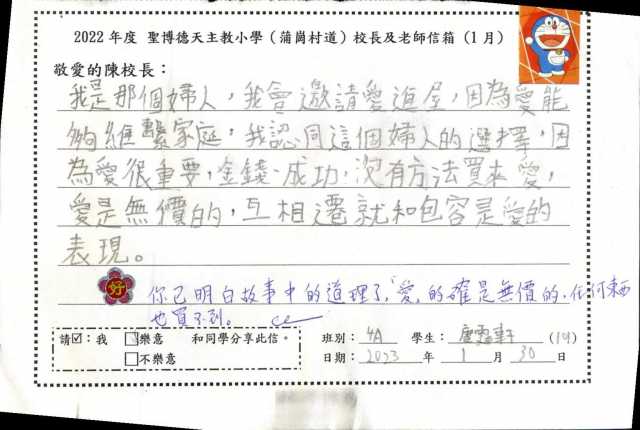 2022年度 聖博德天主教小學（蒲崗村道）校長及老師信箱（1月）
敬愛的陳校長：
我是那個婦人，我會邀請愛進屋，因為愛能
夠維繫家庭，我認同這個婦人的選擇，因
為愛很重要，金錢、成功，沒有方法買來愛，
愛是無價的，互相遷就和包容是愛的
表現。
好
你已明白故事中的道理了，「愛」的確是無價的，任何東西
也買不到。
請☑：我 □樂意 和同學分享此信。
□不樂意
班別：4A 學生： 軒 (19)
日期：2023年1月30日